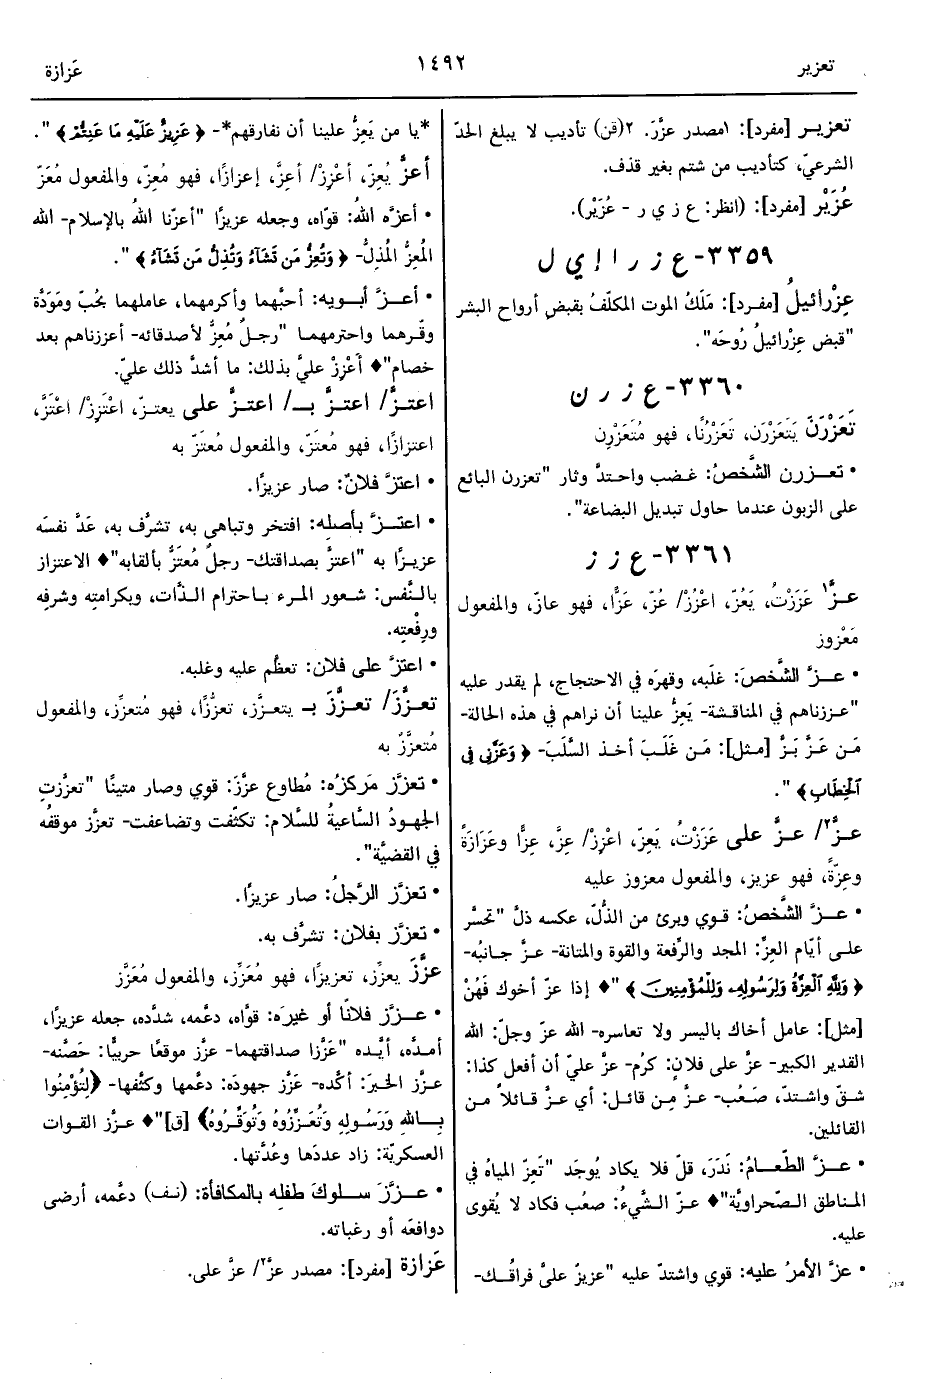 تعزير
١٤٩٢
عَزازة
تعزيـر [مفرد]: ١مصدر عزَّرَ. ٢(قن) تأديب لا يبلغ الحدّ
الشرعيّ، كتأديب من شتم بغير قذف.
عُزَيْر [مفرد]: (انظر: ع ز ي ر - عُزَيْر).
٣٣٥٩- ع ز ر ا إ ي ل
عِزْرائيلُ [مفرد]: مَلَكُ الموت المكلّفُ بقبض أرواح البشر
"قبض عِزْرائيلُ رُوحَه".
٣٣٦٠- ع ز ر ن
تَعَزْرَنَ يَتَعَزْرَن، تَعَزْرُنًا، فهو مُتَعَزْرِن
• تعـزرن الشَّخصُ: غضب واحتدَّ وثار "تعزرن البائع
على الزبون عندما حاول تبديل البضاعة".
٣٣٦١- ع ز ز
عـزَّ١ عَزَزْتُ، يَعُزّ، اعْزُزْ/ عُزّ، عَزًّا، فهو عازّ، والمفعول
مَعْزوز
• عـزَّ الشَّخصَ: غلَبه، وقهرَه في الاحتجاج، لم يقدر عليه
"عـززناهم في المناقشة- يَعِزُّ علينا أن نراهم في هذه الحالة-
مَن عَزَّ بَزَّ [مثل]: مَن غَلَبَ أخذ السَّلَبَ- ﴿ وَعَزَّنِي فِي
الْخِطَابِ﴾ ".
عـزَّ٢/ عـزَّ على عَزَزْتُ، يَعِزّ، اعْزِزْ/ عِزّ، عِزًّا وعَزَازَةً
وعِزّةً، فهو عزيز، والمفعول معزوز عليه
• عـزَّ الشَّخصُ: قـوي وبرئ من الذُّلّ، عكسه ذلَّ "تحسَّر
علـى أيّام العِزّ: المجد والرِّفعة والقوة والمتانة- عـزَّ جـانبُه-
﴿ وَلِلَّهِ الْعِزَّةُ وَلِرَسُولِهِ وَلِلْمُؤْمِنِينَ ﴾ "♦ إذا عزّ أخوك فَهُنْ
[مثل]: عامل أخاك باليسر ولا تعاسره- الله عزّ وجلّ: الله
القدير الكبير- عزَّ على فلانٍ: كرُم- عزَّ عليّ أن أفعل كذا:
شـقّ واشتـدّ، صَعُب- عـزَّ مِـن قائـل: أي عـزَّ قـائلاً مـن
القائلين.
• عـزَّ الطّعـامُ: نَدَرَ، قلّ فلا يكاد يُوجَد "تَعِزّ المياهُ في
المناطق الصّحراويَّة"♦ عـزّ الشَّيءُ: صعُب فكاد لا يُقوى
عليه.
• عزَّ الأمرُ عليه: قوي واشتدّ عليه "عزيزٌ عليَّ فراقُـك-
*يا من يَعِزُّ علينا أن نفارقهم*- ﴿ عَزِيزٌ عَلَيْهِ مَا عَنِتُّمْ ﴾ ".
أعزَّ يُعِزّ، أَعْزِزْ/ أعِزّ، إعزازًا، فهو مُعِزّ، والمفعول مُعَزّ
• أعزَّه اللهُ: قوّاه، وجعله عزيزًا "أعزّنا اللهُ بالإسلام- الله
المُعِزُّ المُذِلُّ- ﴿ وَتُعِزُّ مَن تَشَاءُ وَتُذِلُّ مَن تَشَاءُ ﴾ ".
• أعـزَّ أبـويه: أحبَّهما وأكرمهما، عاملهما بحُبّ ومَوَدَّة
وقّـرهما واحترمهما "رجـلٌ مُعِزٌّ لأصدقائه- أعززناهم بعد
خصام"♦ أَعْزِزْ عليَّ بذلك: ما أشدَّ ذلك عليّ.
اعتـزَّ/ اعتـزَّ بـ/ اعتـزَّ على يعتـزّ، اعْتَزِزْ/ اعْتَزَّ،
اعتزازًا، فهو مُعتَزّ، والمفعول مُعتَزّ به
• اعتزَّ فلانٌ: صار عزيزًا.
• اعتـزَّ بأصلِه: افتخر وتباهى به، تشرَّف به، عَدَّ نفسَه
عزيـزًا به "اعتزَّ بصداقتك- رجلٌ مُعتَزٌّ بألقابه"♦ الاعتزاز
بالـنَّفس: شـعور المـرء بـاحترام الـذَّات، وبكرامتِه وشرفِه
ورِفْعتِه.
• اعتزَّ على فلان: تعظَّم عليه وغلبه.
تعـزَّزَ/ تعـزَّزَ بـ يتعـزَّز، تعزُّزًا، فهو مُتعزِّز، والمفعول
مُتعزَّزٌ به
• تعزَّز مَركزُه: مُطاوع عزَّزَ: قوي وصار متينًا "تعزَّزتِ
الجهودُ السَّاعيةُ للسَّلام: تكثّفت وتضاعفت- تعزّز موقفُه
في القضيَّة".
• تعزَّز الرَّجلُ: صار عزيزًا.
• تعزَّز بفلان: تشرَّف به.
عزَّزَ يعزِّز، تعزيزًا، فهو مُعَزِّز، والمفعول مُعَزَّز
• عـزَّز فلانًا أو غيرَه: قوّاه، دعَّمه، شدّده، جعله عزيزًا،
أمدَّه، أيَّده "عَزَّزا صداقتهما- عزَّز موقعًا حربيًّا: حَصَّنه-
عـزَّز الخبرَ: أكّده- عَزَّز جهودَه: دعَّمها وكثّفها- ﴿لِتُؤْمِنُوا
بِـاللهِ وَرَسُولِهِ وَتُعَـزِّزُوهُ وَتُوَقِّـرُوهُ﴾ [ق]"♦ عـزّز القـوات
العسكريّة: زاد عددَها وعُدَّتها.
• عـزَّزَ سـلوكَ طفلِه بالمكافأة: (نف) دعَّمه، أرضى
دوافعَه أو رغباتِه.
عَزازة [مفرد]: مصدر عزَّ٢/ عزَّ على.